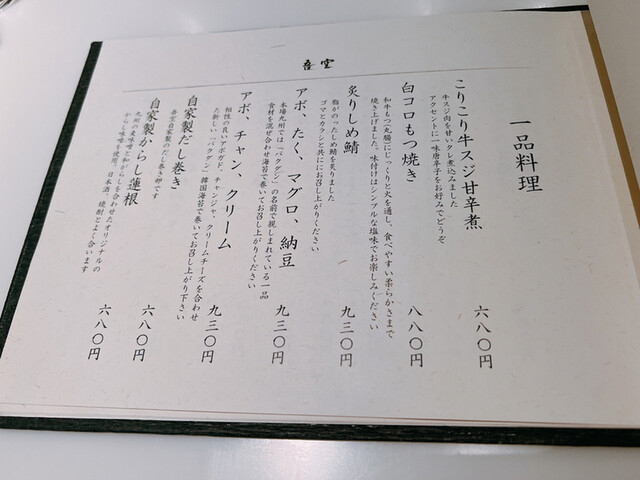 吾空
一品料理
こりこり牛スジ甘辛煮
牛スジ肉を甘いタレ煮込みました
アクセントに一味唐辛子をお好みでどうぞ
六八〇円
白コロもつ焼き
和牛もつ(丸腸)にじっくりと火を通し、食べやすい柔らかさまで
焼き上げました。味付けはシンプルな塩味でお楽しみください
八八〇円
炙りしめ鯖
脂がのったしめ鯖を炙りました
ゴマとカラシと共ににお召し上がりください
九三〇円
アボ、たく、マグロ、納豆
本場九州では「バクダン」の名前で親しまれている一品
食材を混ぜ合わせ海苔で巻いてお召し上がりください
九三〇円
アボ、チャン、クリーム
相性の良いアボガド、チャンジャ、クリームチーズを合わせ
た新しい「バクダン」韓国海苔で巻いてお召し上がり下さい
九三〇円
自家製だし巻き
吾空自家製のだし巻き卵です
六八〇円
自家製からし蓮根
九州の麦味噌と和がらしを合わせたオリジナルの
からし味噌を使用。日本酒、焼酎とよく合います
六八〇円